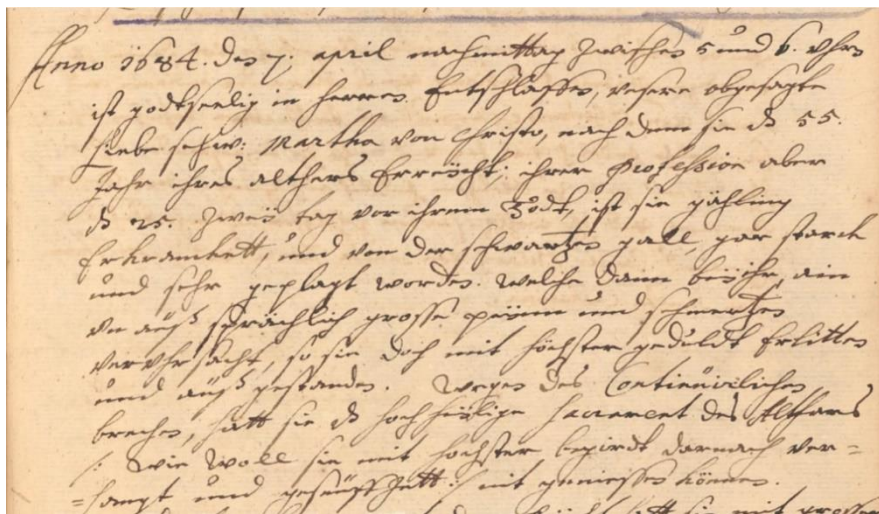 Anno 1684. den 7. april nachmittag zwischen 5 und 6. Uhren
ist gottseelig in herren Entschlaffen, unsere obgesagte
liebe schw: Martha von Christo, nach dem sie dß 55.
Jahr ihres althers Erreicht; ihrer Profession aber
dß 25. zwei tag vor ihrem Todt, ist sie gähling
Erkranckett, und von der schwartzen gall, gar starck
und sehr geplagt worden. welche dann bei ihr, ain
un auß sprächlich grosse peinn und schmertzen
verursacht, so sie doch mit höchster geduldt Erlitten
und auß gestanden. wegen des Continuirlichen
brechen, hatt sie dß hochheilige Sacrament des Althars
/: wie woll sie mit höchster begirdt darnach ver=
=langt und geseuffzett :/ nit geniessen können.